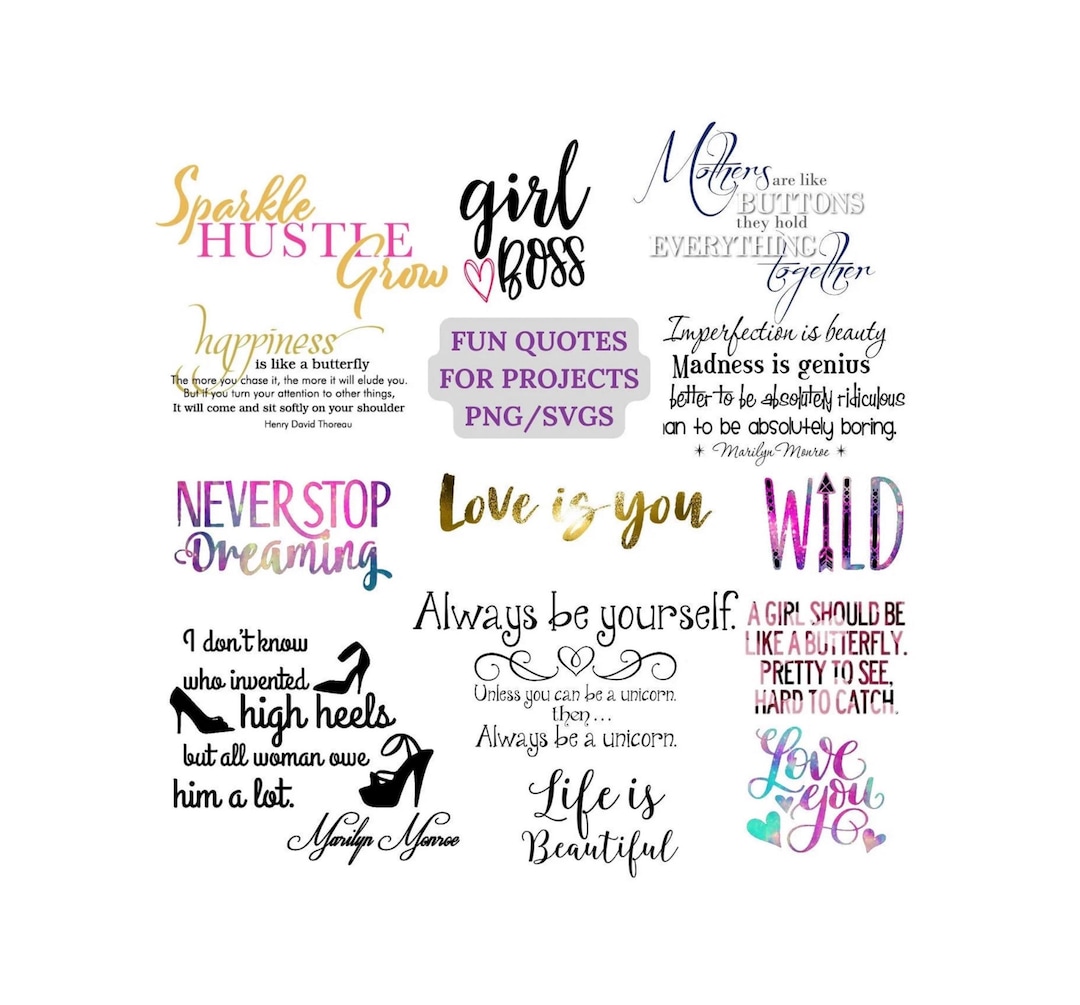 Sparkle
HUSTLE
Grow
girl
BOSS
Mothers are like
BUTTONS
they hold
EVERYTHING
together
happiness
is like a butterfly
The more you chase it, the more it will elude you.
But if you turn your attention to other things,
It will come and sit softly on your shoulder
Henry David Thoreau
FUN QUOTES
FOR PROJECTS
PNG/SVGS
Imperfection is beauty
Madness is genius
better to be absolutely ridiculous
an to be absolutely boring.
Marilyn Monroe
NEVER STOP
Dreaming
Love is you
WILD
I don't know
who invented
high heels
but all woman owe
him a lot.
Marilyn Monroe
Always be yourself.
Unless you can be a unicorn.
then...
Always be a unicorn.
Life is
Beautiful
A GIRL SHOULD BE
LIKE A BUTTERFLY.
PRETTY TO SEE,
HARD TO CATCH.
Love
you